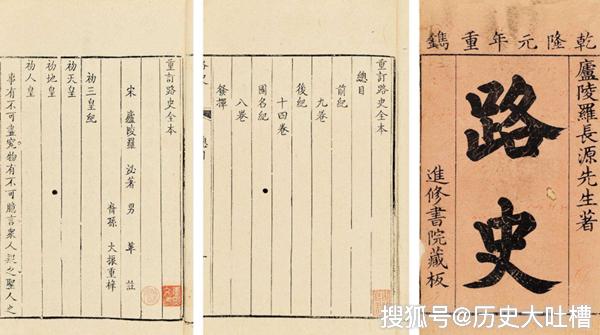 乾隆元年重鐫
廬陵羅長源先生著
路史
進修書院藏板
重訂路史全本
總目
前紀
九卷
後紀
十四卷
國名紀
八卷
發揮
總目
重訂路史全本
宋 廬陵羅 泌著 男 苹 註
裔孫 大振重梓
初三皇紀
初天皇
初地皇
初人皇
事有不可盡究物有不可臆言衆人疑之聖人之
搜狐号@历史大吐槽